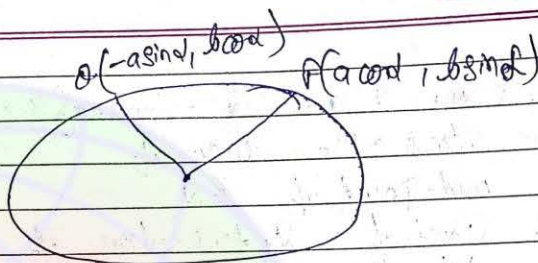 Q(-a sinα, b cosα)
P(a cosα, b sinα)